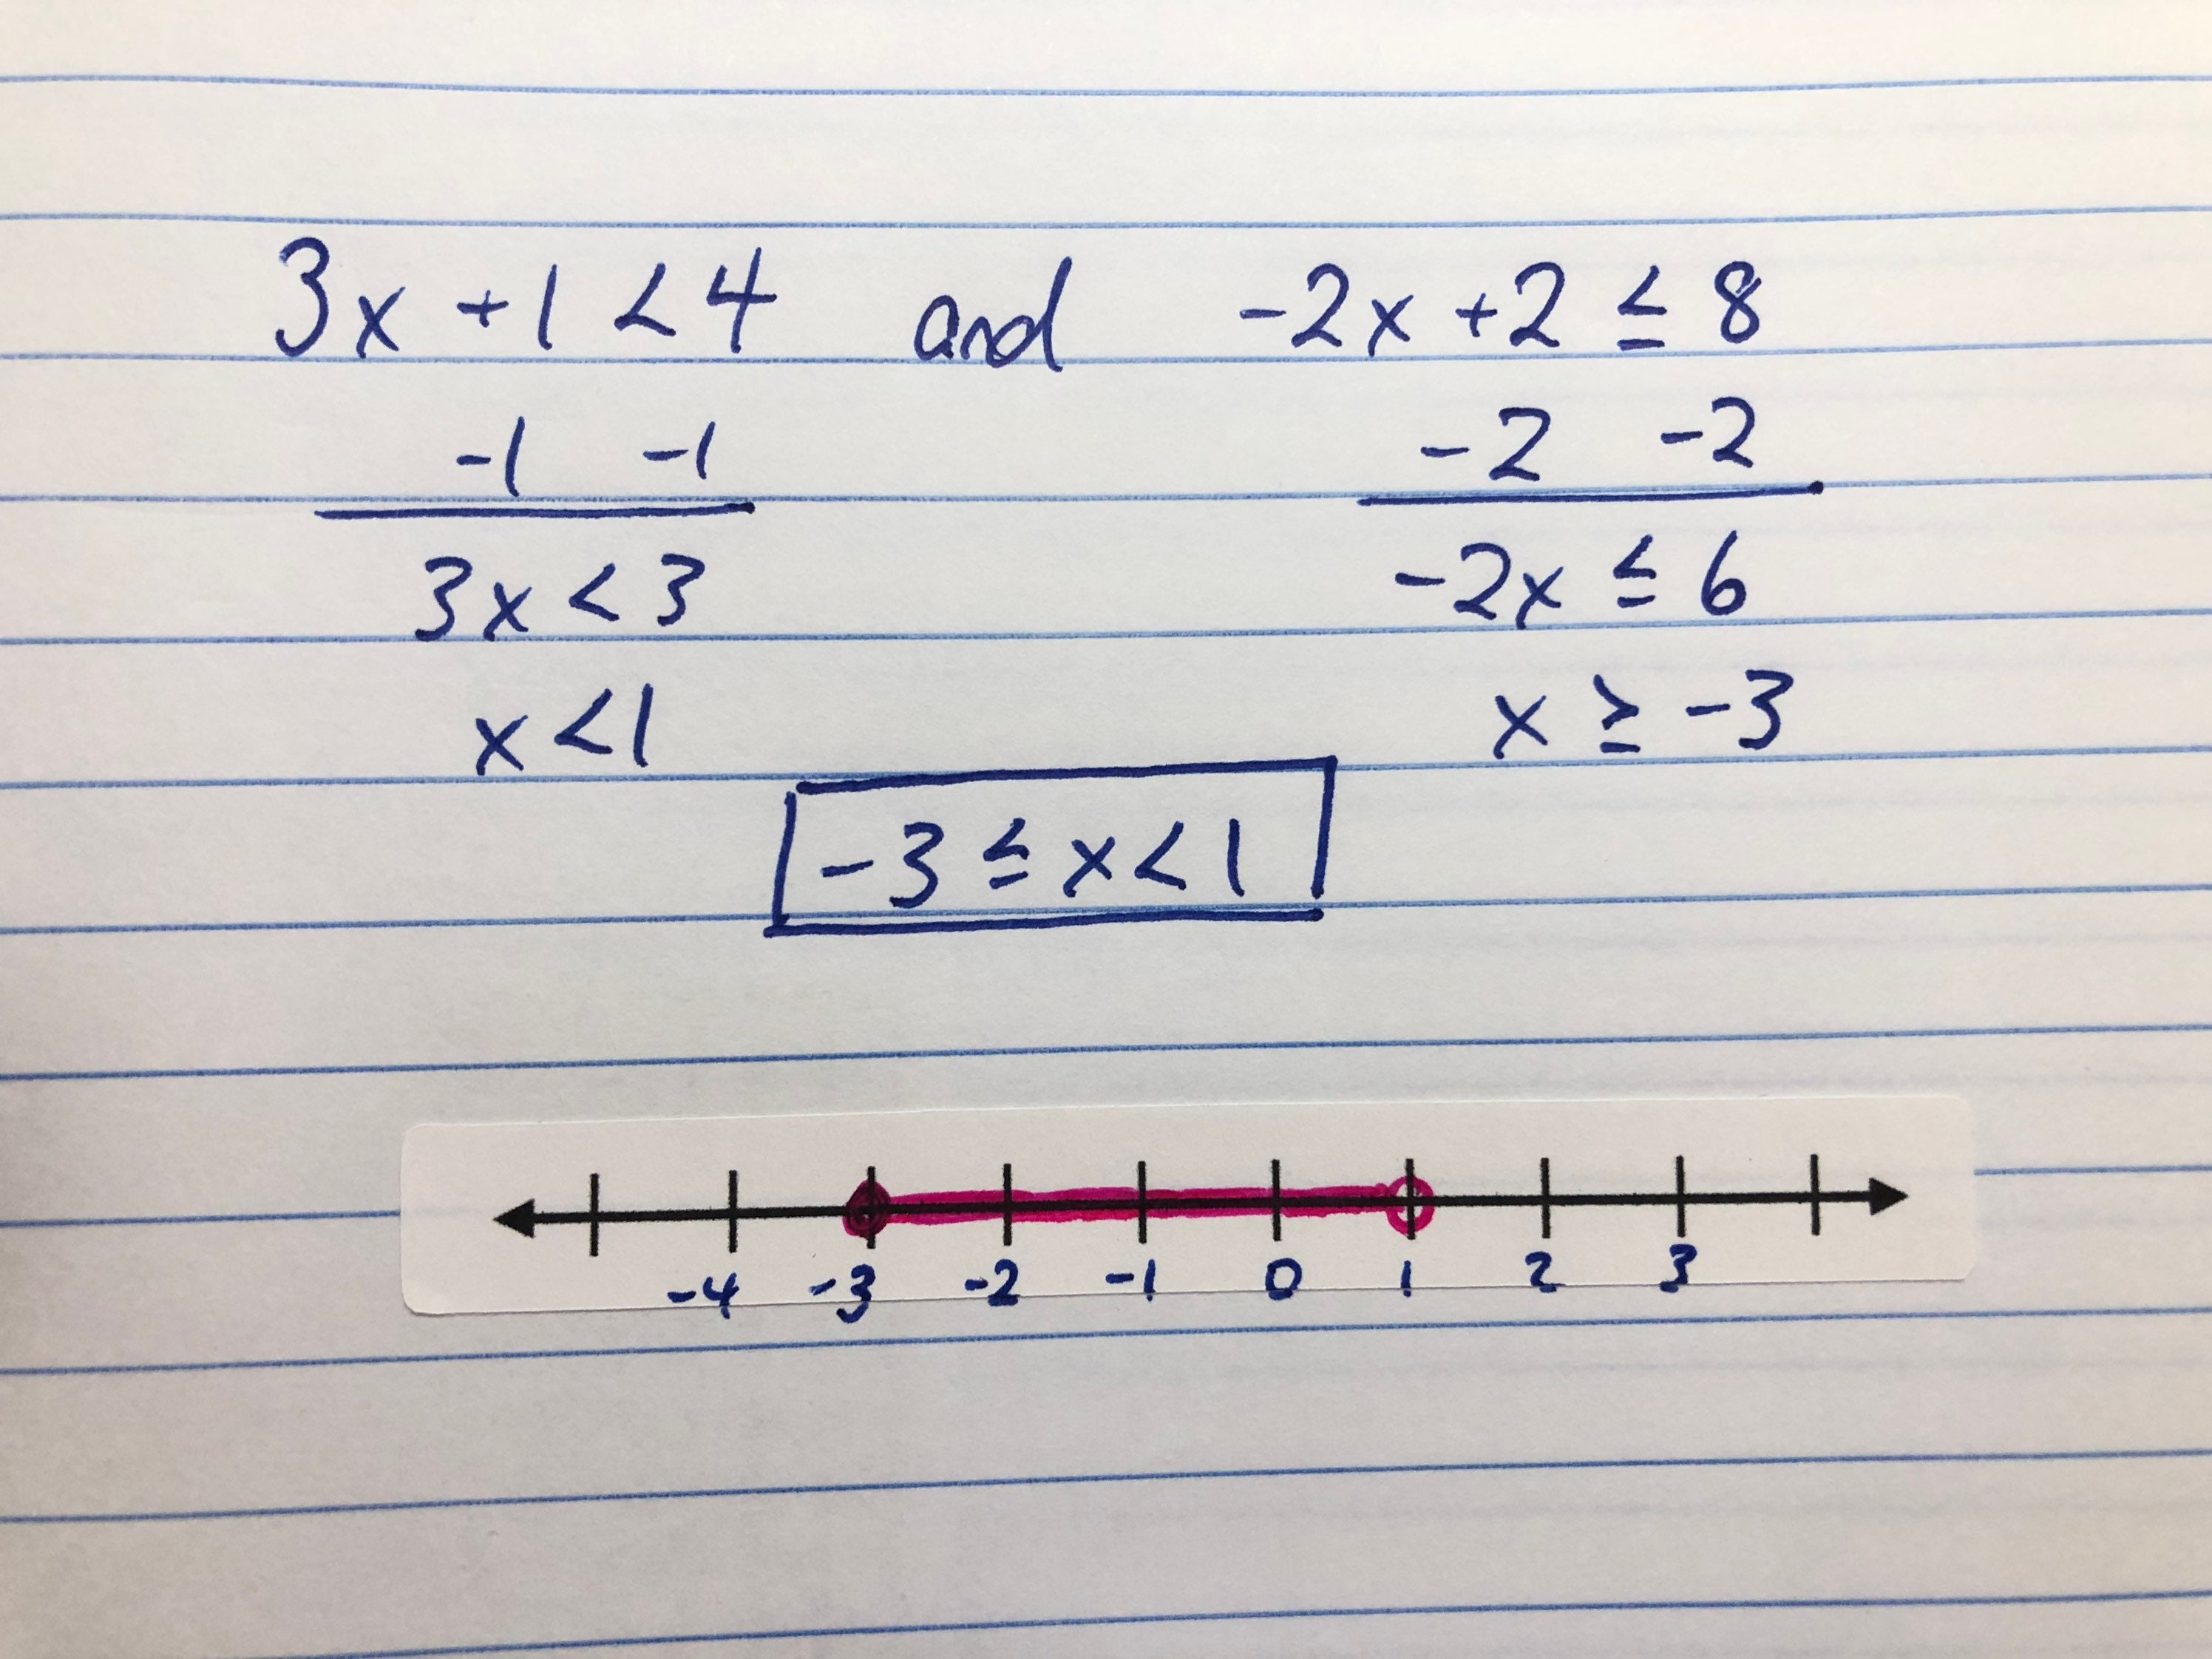 3x +1 < 4 and -2x +2 ≤ 8
-1 -1 -2 -2
3x < 3 -2x ≤ 6
x < 1 x ≥ -3
-3 ≤ x < 1
-4 -3 -2 -1 0 1 2 3